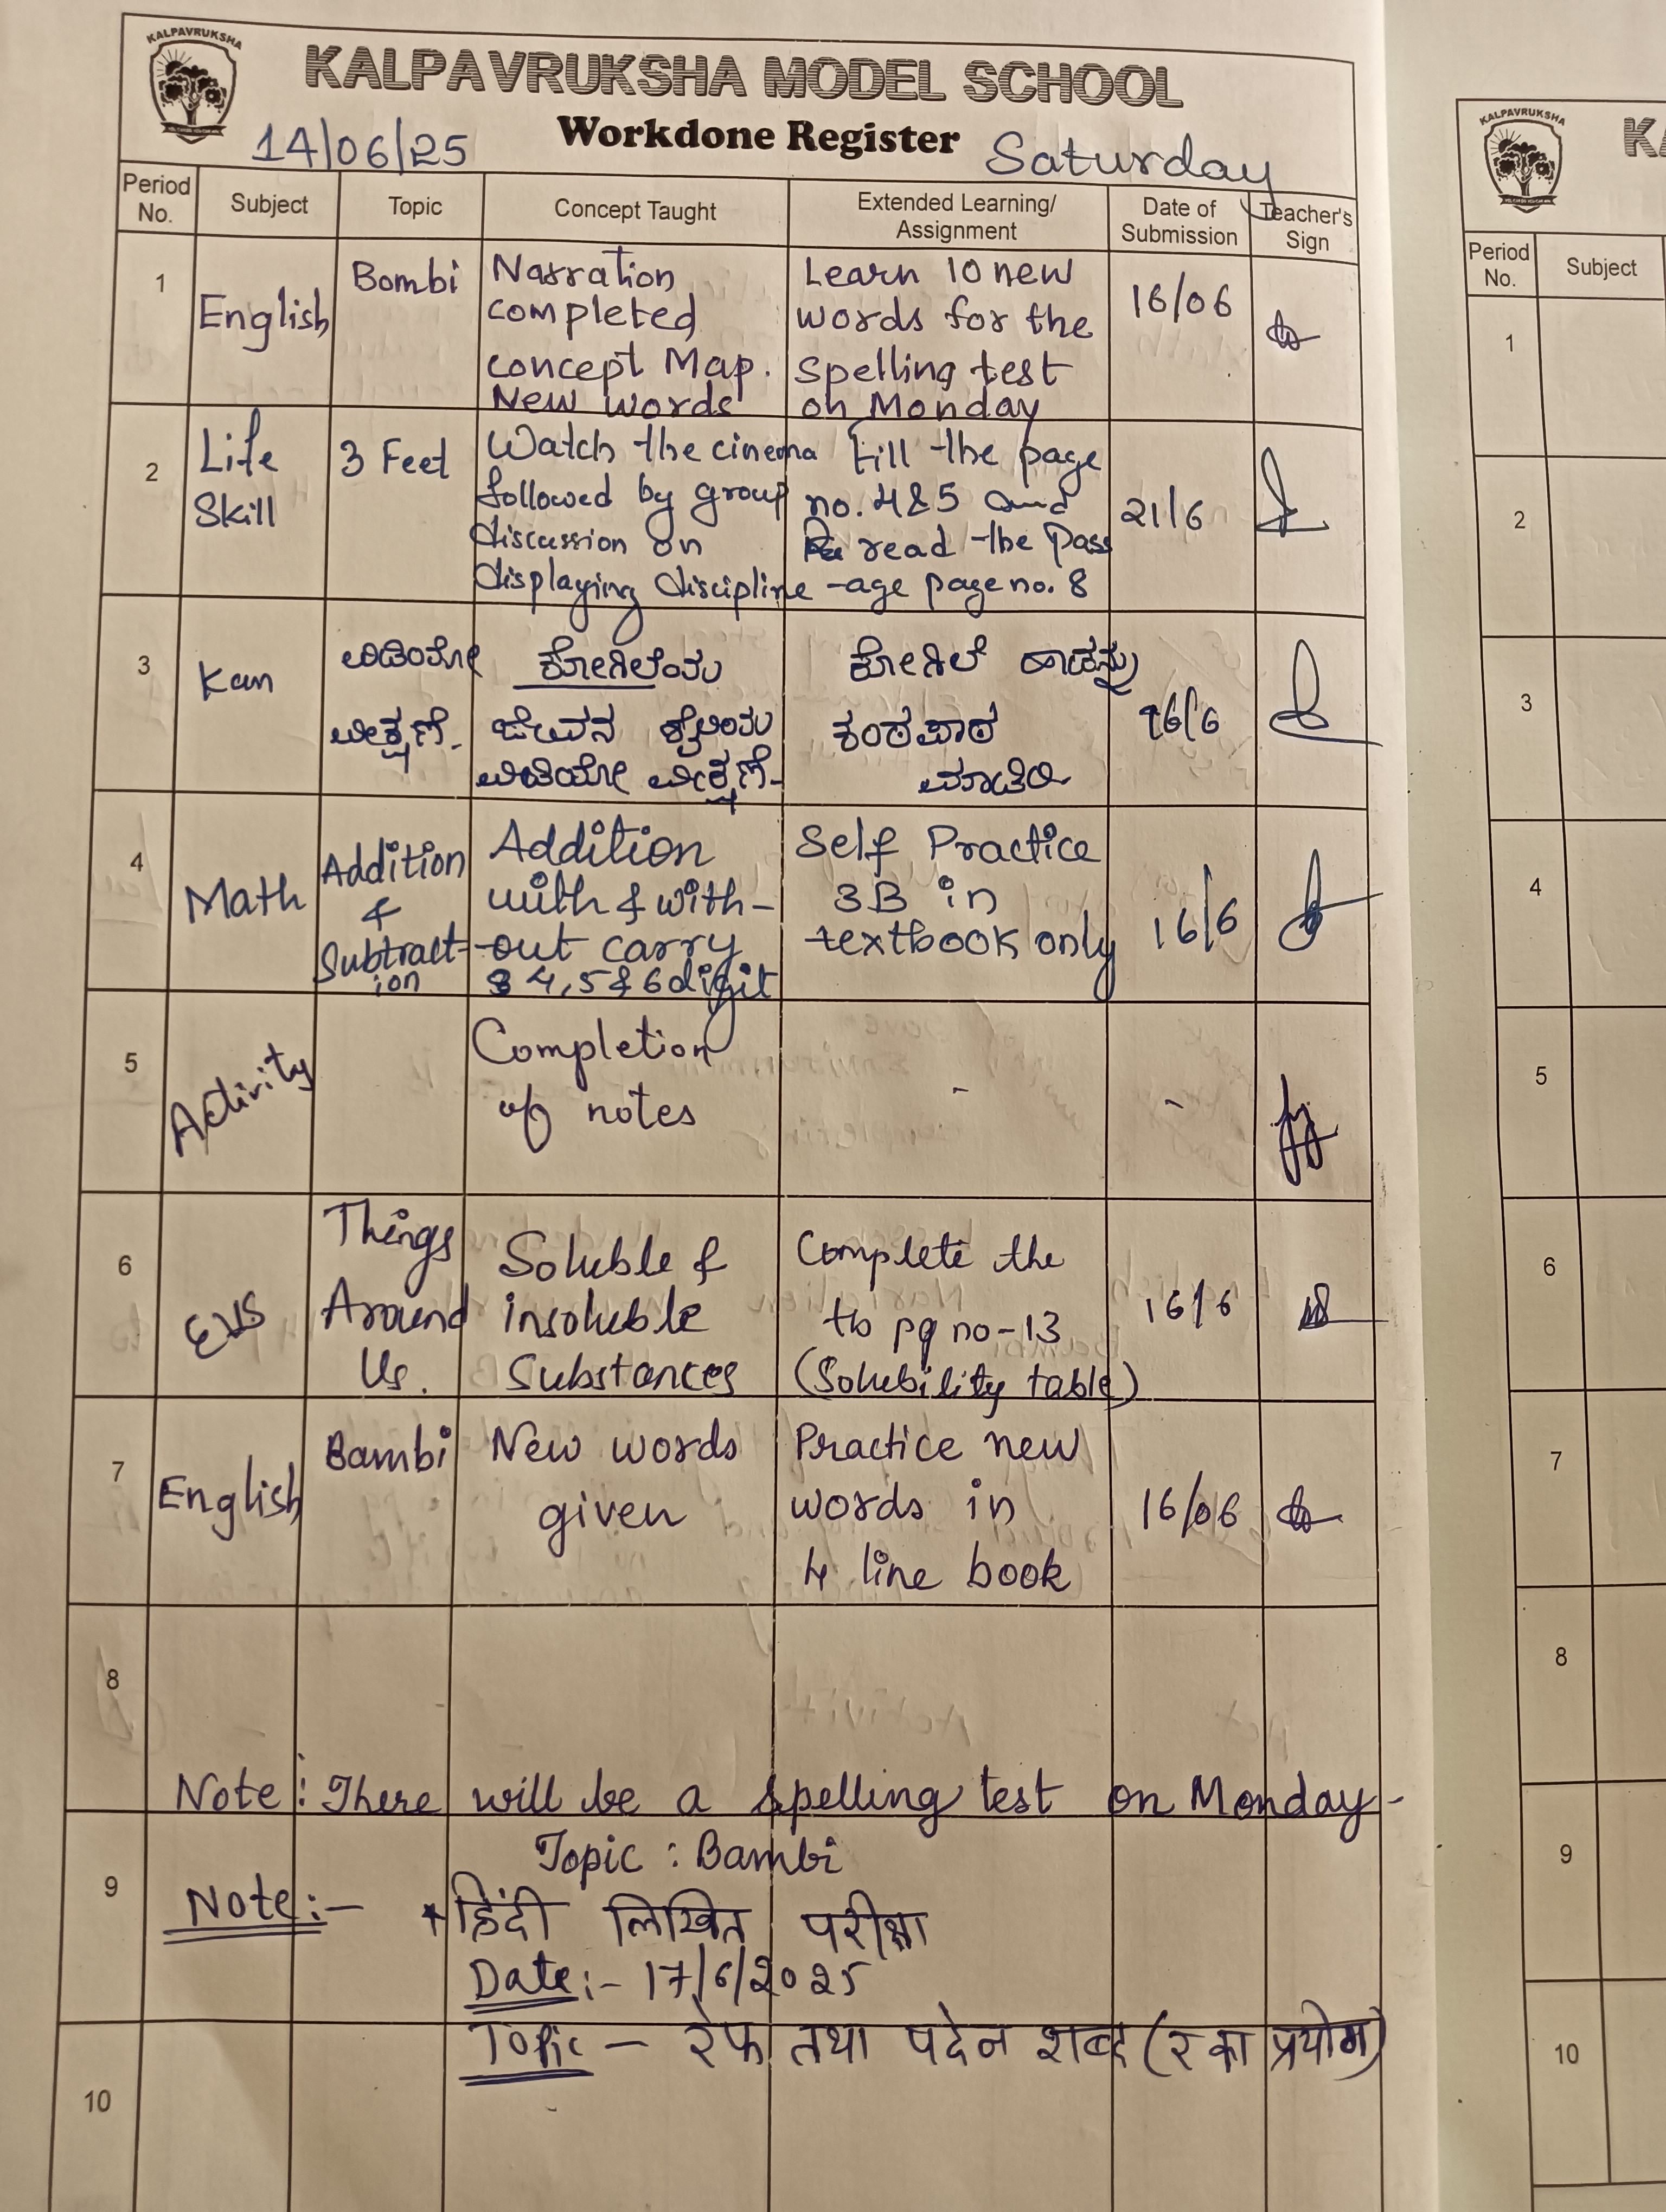 KALPAVRUKSHA
KALPAVRUKSHA MODEL SCHOOL
14/06/25 Workdone Register Saturday
Period No. Subject Topic Concept Taught Extended Learning/ Assignment Date of Submission Teacher's Sign
1 English Bombi Narration Learn 10 new 16/06
completed words for the
concept Map. spelling test
New words on Monday
2 Life Skill 3 Feet Watch the cinema Fill the page 21/6
followed by group no. 4&5 and
discussion on read the Pass
displaying discipline -age page no. 8
3 Kan ವಿಡಿಯೋ ಕೋಗಿಲೆಯ ಕೋಗಿಲೆ ಹಾಡನ್ನು 16/6
ವೀಕ್ಷಣೆ. ಜೀವನ ಶೈಲಿಯ ಕಂಠಪಾಠ
ವಿಡಿಯೋ ವೀಕ್ಷಣೆ- ಮಾಡಿರಿ
4 Math Addition Addition Self Practice 16/6
& with & with- 3B in
Subtract- -out carry textbook only
ion 4,5&6 digit
5 Activity Completion - -
of notes
6 EVS Things Soluble & Complete the 16/6
Around insoluble tb pg no-13
Us. Substances (Solubility table)
7 English Bambi New words Practice new 16/06
given words in
4 line book
8
Note: There will be a spelling test on Monday-
Topic : Bambi
9 Note:- हिंदी लिखित परीक्षा
Date:- 17/6/2025
Topic - रेफ तथा पदेन शब्द (र का प्रयोग)
10
KALPAVRUKSHA
KA
Period No. Subject
1
2
3
4
5
6
7
8
9
10